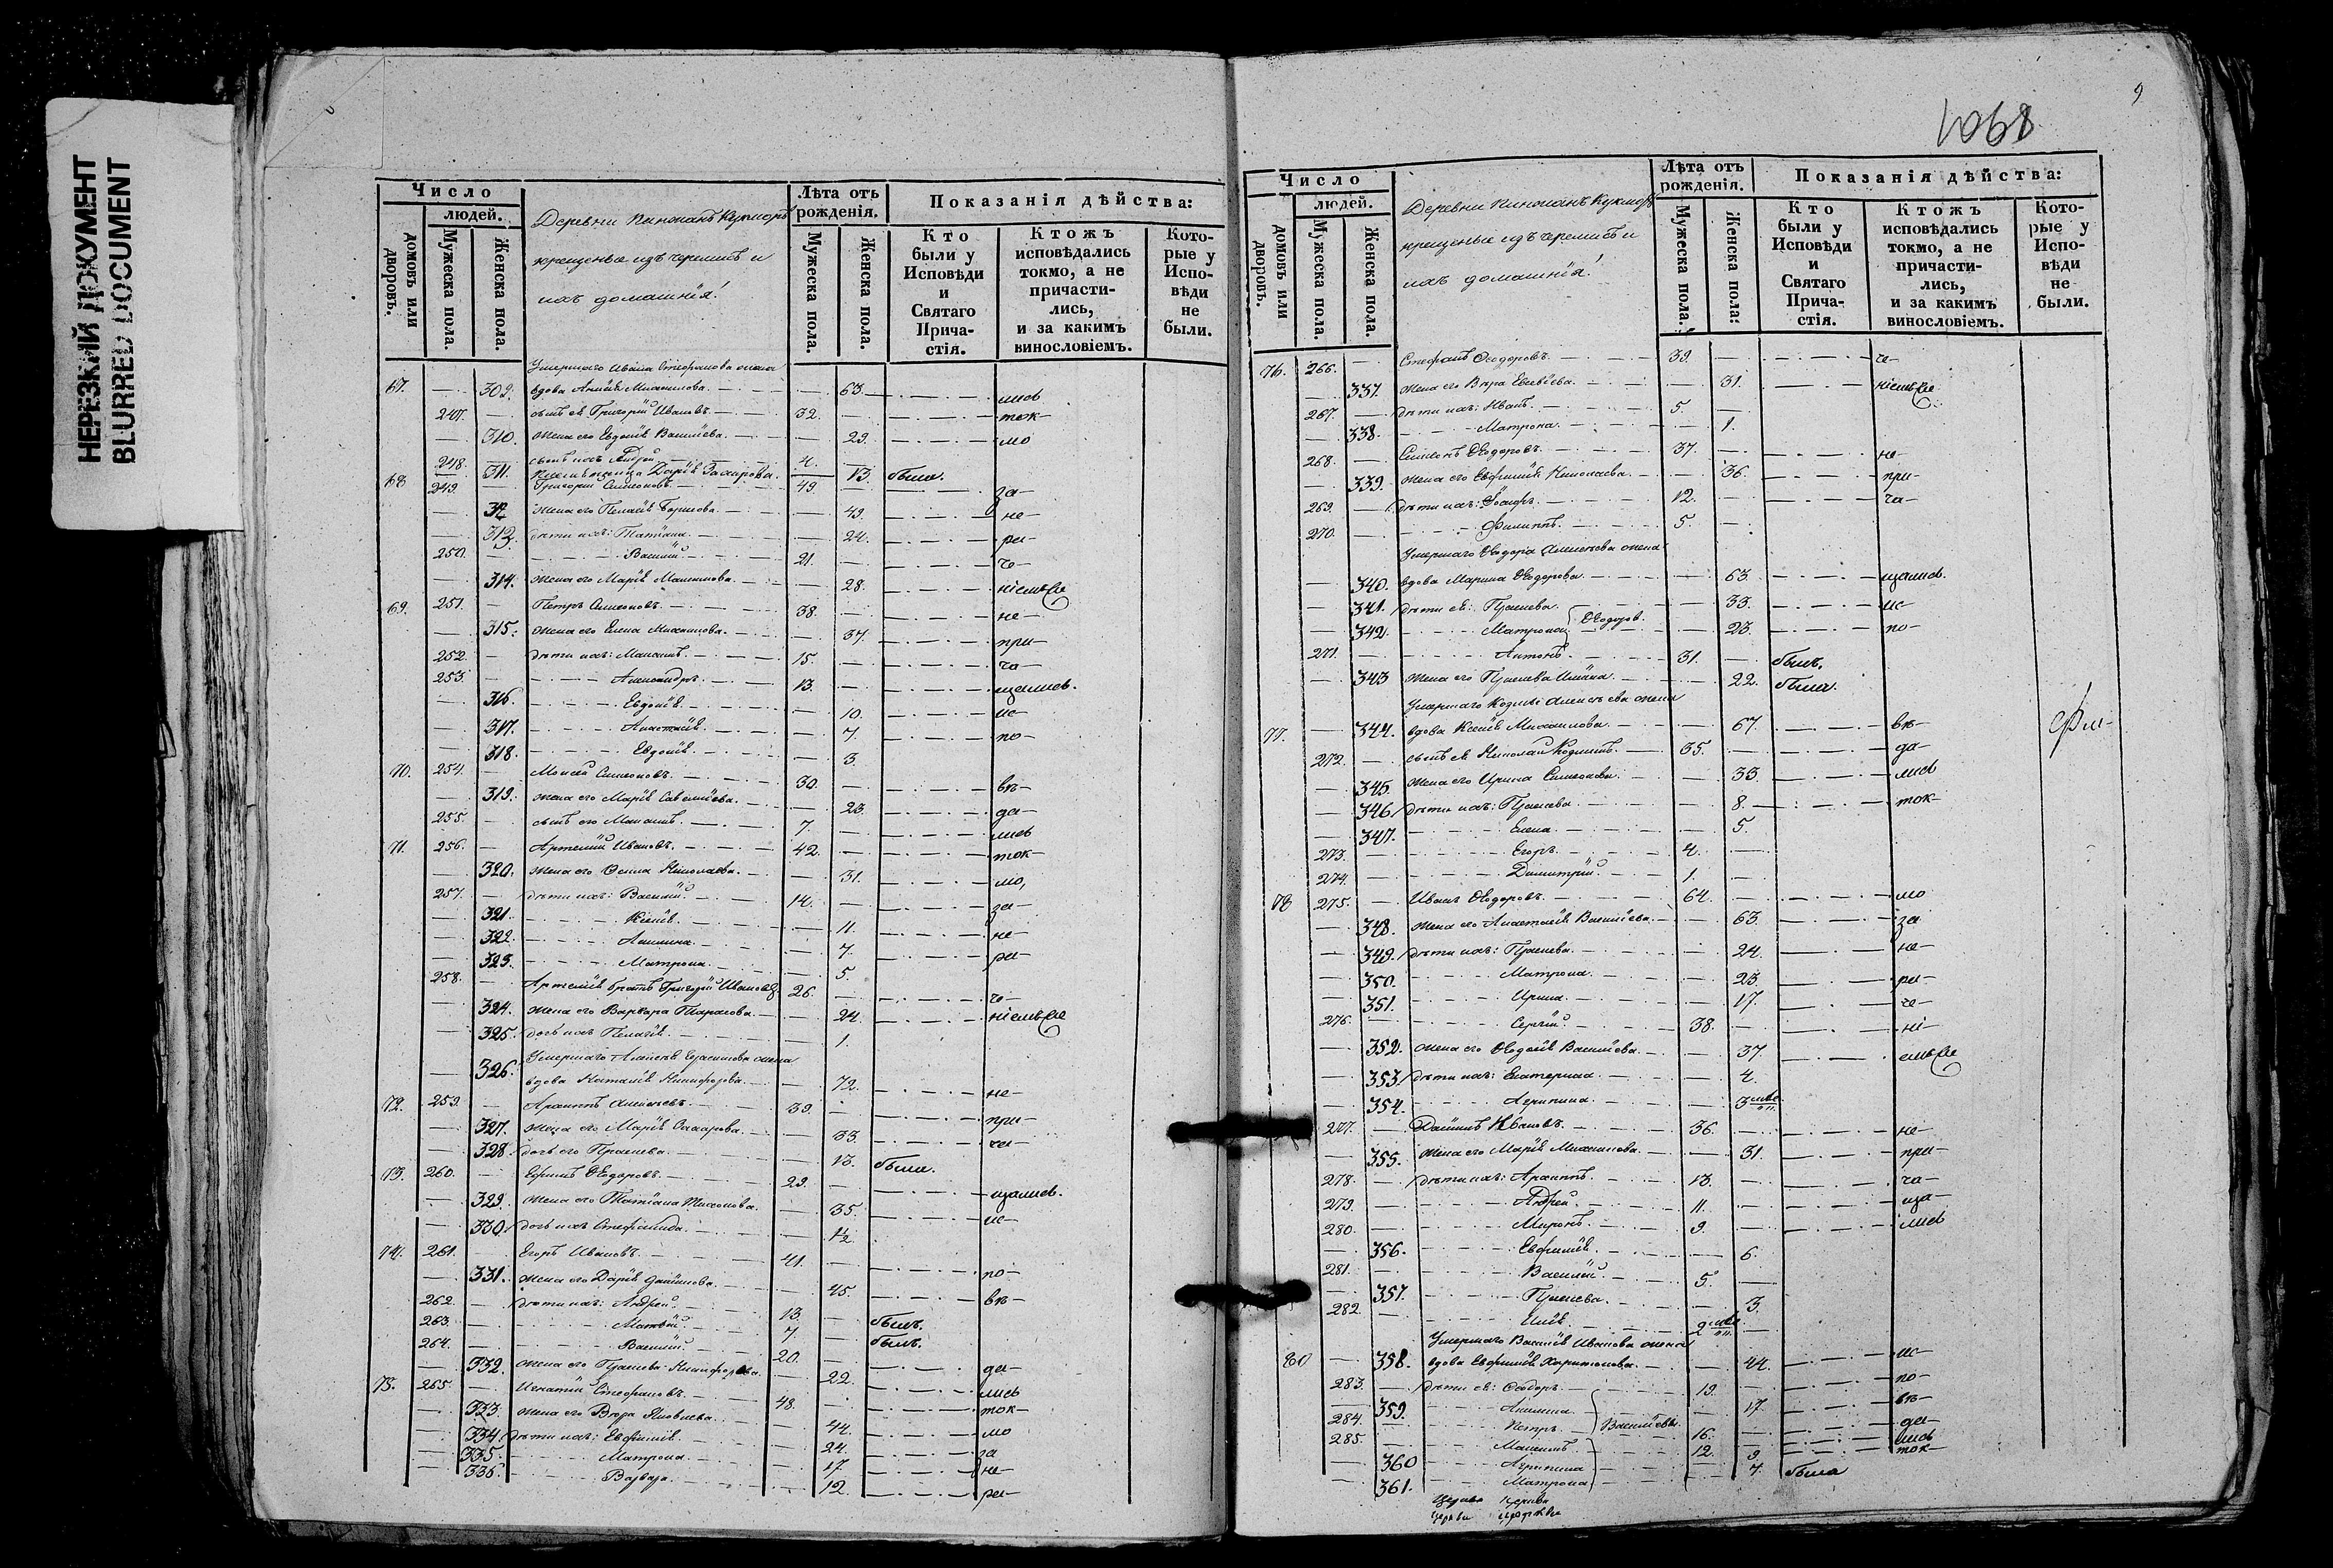 НЕРЕЗКИЙ ДОКУМЕНТ
BLURRED DOCUMENT
Число
людей.
домовъ или дворовъ.
Мужеска пола.
Женска пола.
Деревни
крещеные изъ черемисъ и
ихъ домашнія:
Лѣта отъ рожденія.
Мужеска пола.
Женска пола.
Показанія дѣйства:
Кто были у Исповѣди и Святаго Прича-стія.
Ктожъ исповѣдались токмо, а не причасти-лись, и за какимъ винословіемъ.
Кото-рые у Испо-вѣди не были.
Умершаго Ивана Стефанова жена
67. 309. вдова Михаилова. 63. лись
247. сынъ ея Григорій Ивановъ. 32. ток-
310. жена его Евдокія Васильева. 29. мо
248. сынъ ихъ Андрей 4.
311. Дарія Захарова. 13. была.
68 249. Григорій Симеоновъ. 49. за-
312 жена его Пелагія Борисова. 49. не-
313 дѣти ихъ: Татіана. 24. ра-
250. Василій. 21. че-
314. жена его Марія Максимова. 28. ніемъ
69. 251. Петръ Симеоновъ. 38. не-
315. жена его Елена Михаилова. 37. при-
252. дѣти ихъ: 15. ча-
253. Александръ. 13. щались.
316. Евдокія. 10. ис-
317. Анастасія. 7. по-
318. Евдокія. 3.
70. 254. Моисей Симеоновъ. 30. вѣ-
319. жена его Марія Савельева. 23. да-
255. сынъ его 7. лись
71. 256. Артемій Ивановъ. 42. ток-
320. жена его Николаева. 31. мо,
257. дѣти ихъ: Василій. 14. за-
321. Ксенія. 11. не-
322. Акилина. 7. ра-
323. Матрона. 5.
258. Артемія братъ Григорій Ивановъ 26. че-
324. жена его Варвара Тарасова. 24. ніемъ
325. дочь ихъ Пелагія. 1.
Умершаго Алексѣя Герасимова жена
326. вдова Наталія Никифорова. 72. не-
72. 259. Архиппъ Алексѣевъ. 39. при-
327. жена его Марія Захарова. 33. ча-
328. дочь его Параскева. 13. была.
73. 260. Ефимъ Ѳедоровъ. 29. щались.
329. жена его Татіана Тихонова. 35. ис-
330. дочь ихъ Стефанида. 1/2
74. 261. Егоръ Ивановъ. 41. по-
331. жена его Дарія Данилова. 45. вѣ-
262. дѣти ихъ: Андрей. 13. былъ.
263. Матвѣй. 7. былъ.
264. Василій. 20. да-
332. жена его Параскева Никифорова. 22. лись
75. 265. Игнатій Стефановъ. 48. ток-
333. жена его Вѣра Яковлева. 44. мо
334. дѣти ихъ: Евфимія. 24. за
335. Матрона. 17. не-
336. Варвара. 12. ра-
9
1068
Число
людей.
домовъ или дворовъ.
Мужеска пола.
Женска пола.
Деревни
крещеные изъ черемисъ и
ихъ домашнія:
Лѣта отъ рожденія.
Мужеска пола.
Женска пола:
Показанія дѣйства:
Кто были у Исповѣди и Святаго Прича-стія.
Ктожъ исповѣдались токмо, а не причасти-лись, и за какимъ винословіемъ.
Кото-рые у Испо-вѣди не были.
76. 266. Стефанъ Ѳеодоровъ. 39. че-
337. жена его Вѣра 31. ніемъ
267. дѣти ихъ: Иванъ. 5.
338. Матрона. 1.
268. Симеонъ Ѳеодоровъ. 37. не-
339. жена его Евфимія Николаева. 36. при-
269. дѣти ихъ: 12. ча-
270. Филиппъ. 5.
Умершаго Ѳеодора Алексѣева жена
340. вдова Марина Ѳеодорова. 63. щались.
341. дѣти ея: Параскева. 33. ис-
342. Матрона Ѳеодоров. 23. по-
271. Антонъ. 31. былъ.
343 жена его Параскева 22. была.
Умершаго Козмы Алексѣева жена
77. 344. вдова Ксенія Михаилова. 67. вѣ-
272. сынъ ея Николай Козминъ. 35. да-
345. жена его Ирина Симеонова. 33. лись
346. дѣти ихъ: Параскева. 8. ток-
347. Елена. 5.
273. Егоръ. 4.
274. Димитрій. 1.
78 275. Иванъ Ѳеодоровъ. 64. мо
348. жена его Анастасія Васильева. 63. за
349. дѣти ихъ: Параскева. 24. не-
350. Матрона. 23. ра-
351. Ирина. 17. че-
276. Сергій. 38. ні-
352. жена его Ѳеодосія Васильева. 37. емъ
353. дѣти ихъ: Екатерина. 4.
354. Агрипина. 3 мѣс.
277. Даніилъ Ивановъ. 36. не-
355. жена его Марія Михаилова. 31. при-
278. дѣти ихъ: Архиппъ. 13. ча-
279. Андрей. 11. ща-
280. Миронъ. 9. лись
356. Евфимія. 6.
281. Василій. 5.
357. Параскева. 3.
282. Илія. 2 мѣс.
Умершаго Василія Иванова жена
80 358. вдова Евфимія Харитонова. 44. ис-
283. дѣти ея: Ѳеодоръ. 19. по-
359. Акилина. 17. вѣ-
284. Петръ Васильевы. 16. да-
285. Максимъ 12. лись
360 Агрипина 9. ток-
361. Матрона 7. была